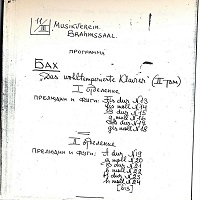 11/III Musikverein.
Brahmssaal.
программа
Бах
"Das wohltemperierte Klavier" (II том)
I отделение
прелюдии и фуги: Fis dur N13
fis moll N14
G dur N15
g moll N16
As dur N17
gis moll N18
II отделение
прелюдии и фуги: A dur N19
a moll N20
B dur N21
b moll N22
H dur N23
h moll N24
[bis]